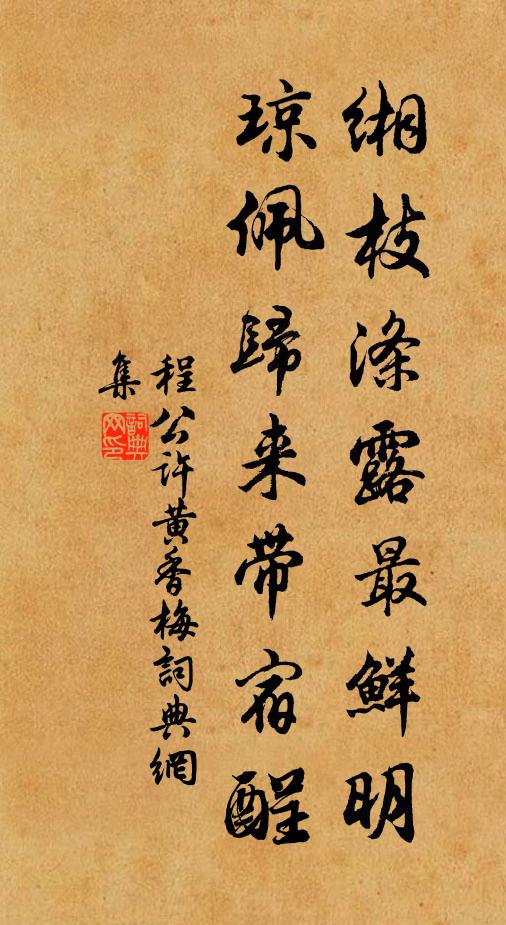 缃枝涤露最鮮明
琼佩歸来带宿酲
程公许黄香梅詞典網
集
詞典網印